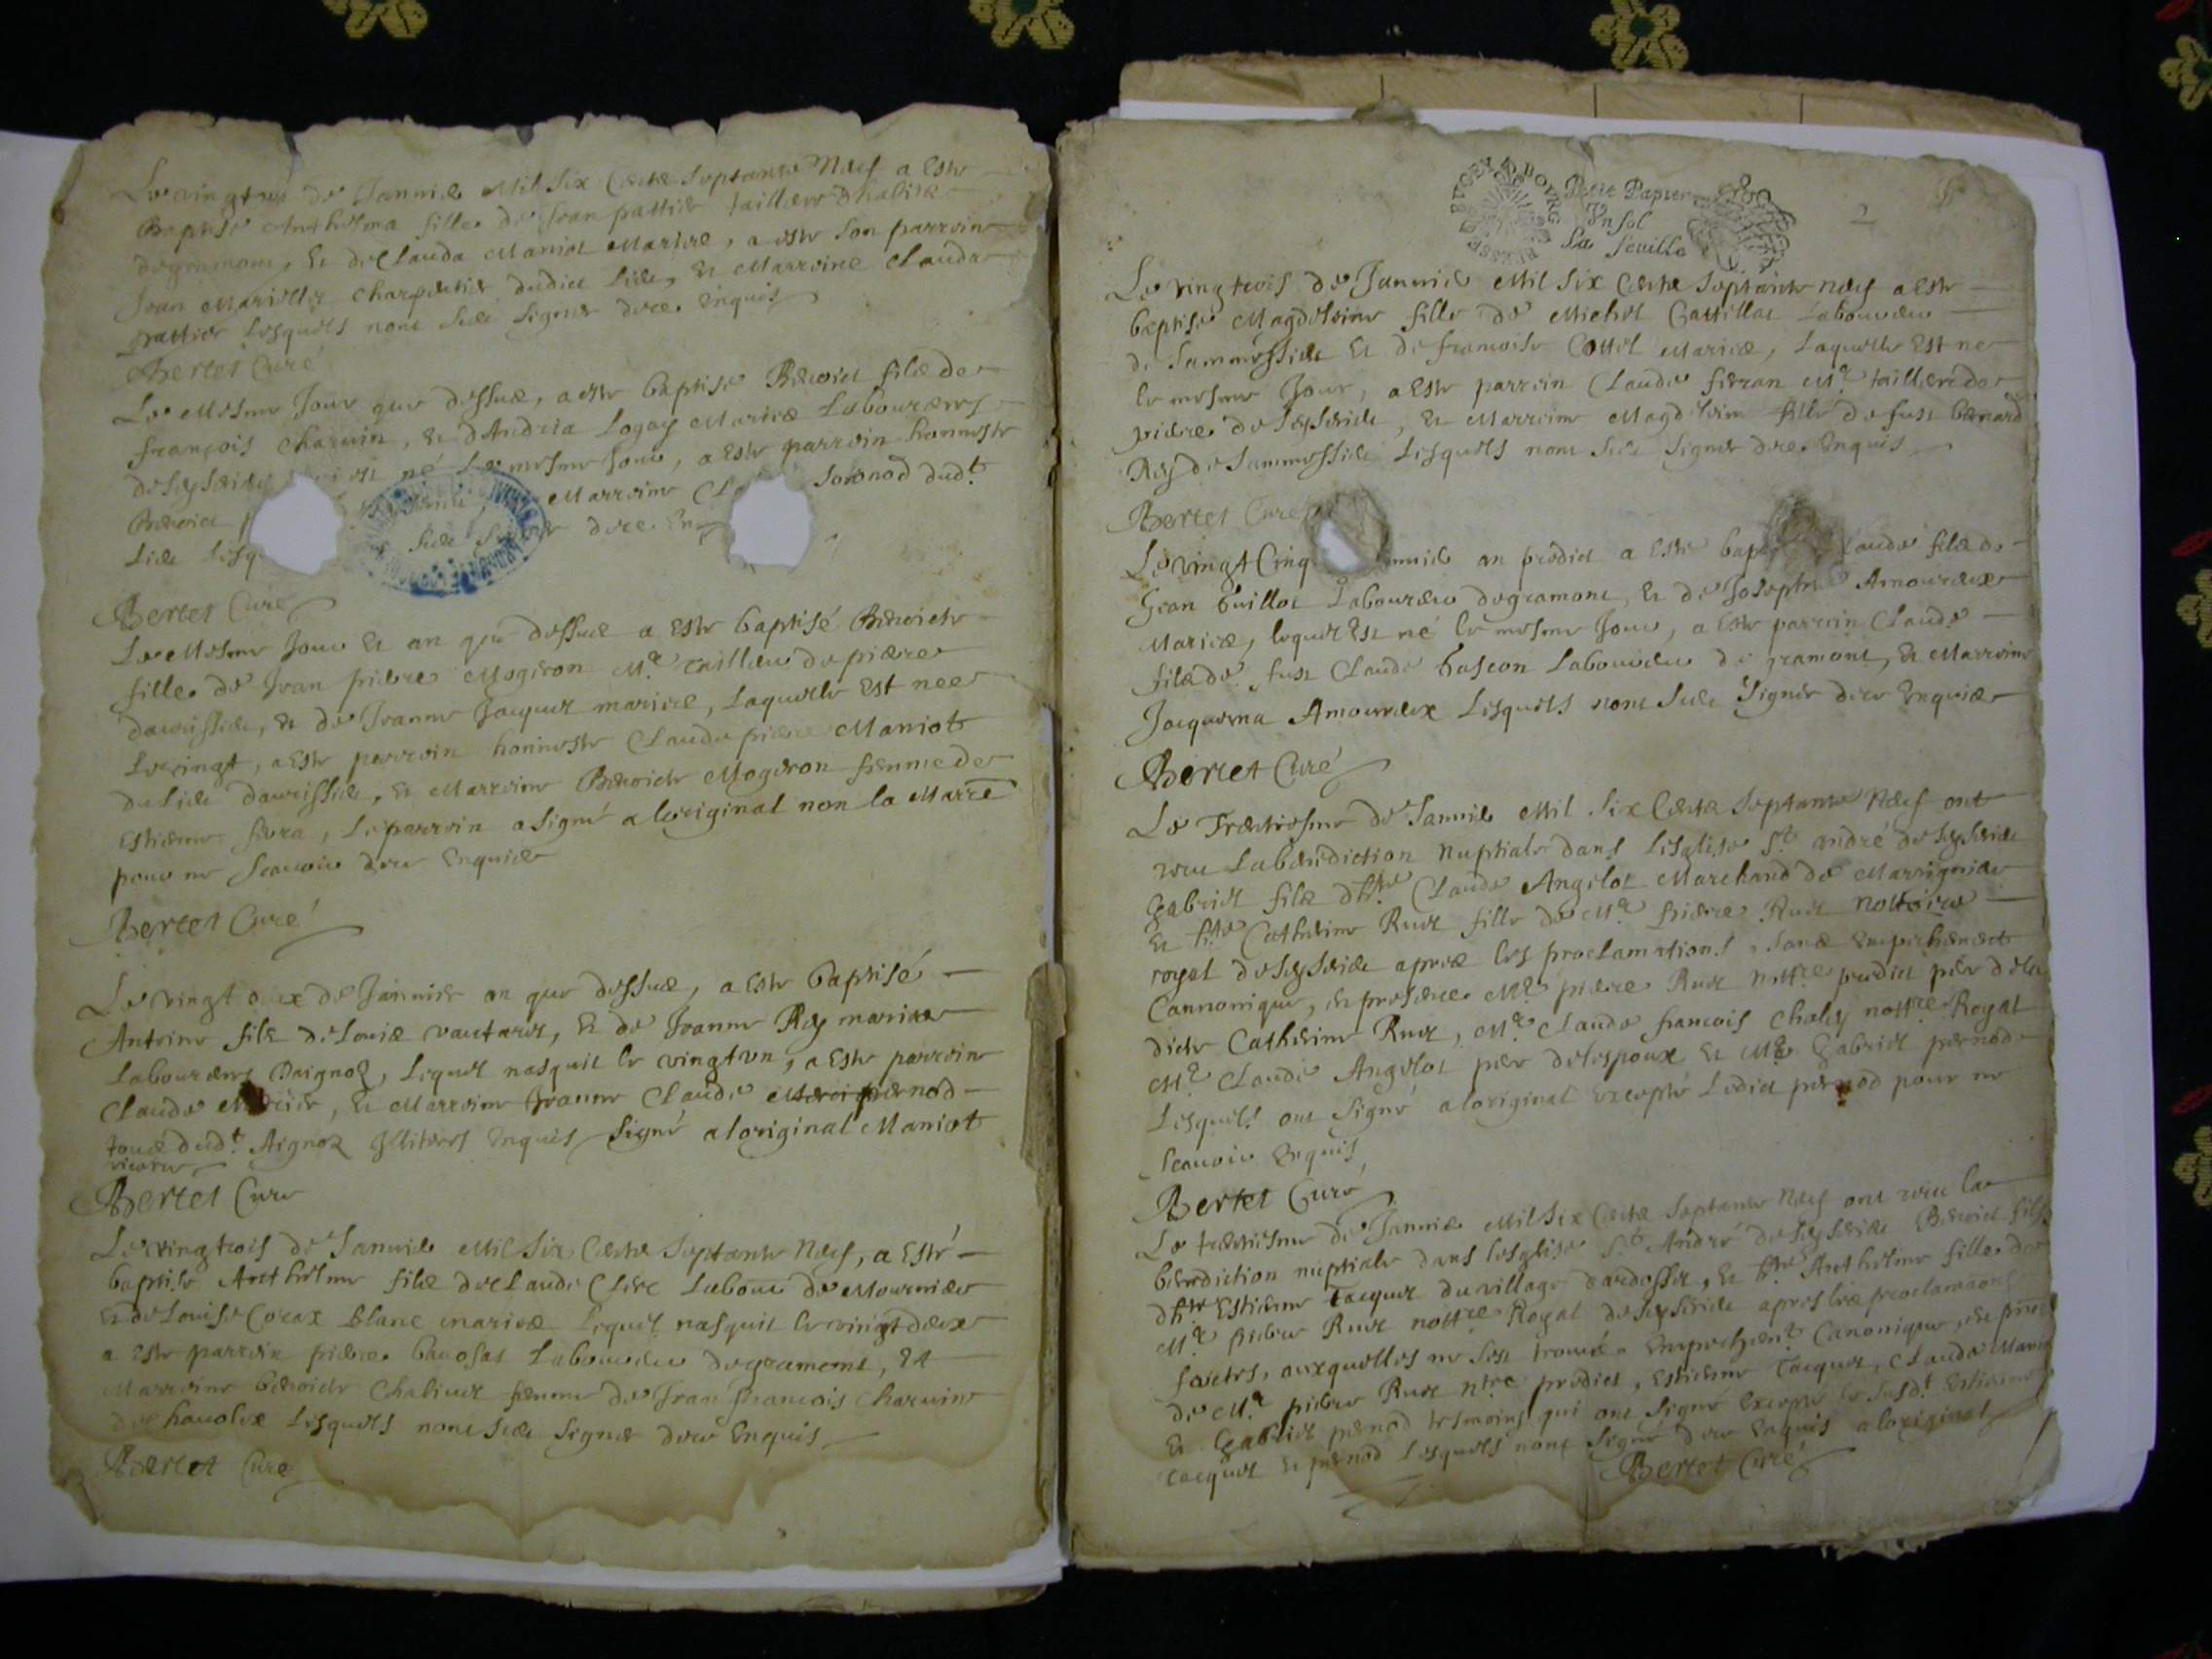 Le vingtun de Janvier Mil Six Cents Septante Neuf a Este
Baptisé Anthelma fille de Jean pattier tailleur dhabits
degramont, et de Clauda Maniot Mariés, a este son parroin
Jean Mariotte charpentier dudict lieu, et Marroine Clauda
pattier Lesquels nont sceu signer de ce enquis
Bertet Curé
Le Mesme Jour que dessus, a este baptisé Benoict fils de
françois charvin, et dAndrea Logoy Mariés Laboureurs
de né Le mesme Jour, a Este parroin honneste
Benoict Marroine dud.t
lieu lesq sceu de ce En
Bertet Curé
Le Mesme Jour et an que dessus a Este baptisé Benoicte
fille de Jean pierre Mogeron M.e tailleur de pierre
davrissieu, et de Jeanne Jacquet mariés, Laquelle Est nee
Le vingt, a Este parroin honneste Claude pierre Maniot
du lieu davrissieu, et Marroine Benoicte Mogeron femme de
Estienne fevra, Le parroin a signé a loriginal non la Marre
pour ne scavoir de ce enquise
Bertet Curé
Le vingt deux de Janvier an que dessus, a Este baptisé
Antoine fils de Louis vautaret, et de Jeanne Rey mariés
Laboureurs Daignoz, Lequel nasquit le vingtun, a Este parroin
Claude Mercier, et Marroine Jeanne Claude pernod
tous dud.t Aignoz Illiteres enquis signé a loriginal Maniot
vicaire
Bertet Cure
Le vingtrois de Janvier Mil Six Cents Septante Neuf, a Esté
baptise Anthelme fils de Claude Clerc Labour de Mournieu
et de Louise Corax blanc mariés Lequel nasquit le vingt deux
a Este parroin pierre bavosat Laboureur degramont, Et
Marroine benoicte Chalivet femme de Jean françois Charvin
de chavolex Lesquels nont sceu signer de ce enquis
Bertet Cure
BVGEY BOVRG BRESSE
Petit Papier
Vn sol
La feuille
2
Le vingtrois de Janvier Mil Six Cents Septante neuf a Este
baptisé Magdeleine fille de Michel Gattillat Laboureur
de Sammessieu et de francoise Cottet Mariés, Laquelle Est nee
le mesme Jour, a Este parroin Claude fieran M.e tailleur de
pierre de Seyserieu, et Marroine Magdeleine fille de fust benard
Rey de Sammessieu Lesquels nont sceu signer de ce enquis
Bertet Curé
Le vingt Cinq anvier an predict a Este bap laude fils de
Jean Guillot Laboureur degramont, et de Josephte Amoureux
Mariés, lequel est né le mesme Jour, a Este parroin Claude
fils de fust Claude Gascon Laboureur de gramont, et Marroine
Jacquema Amoureux Lesquels nont sceu signer de ce enquis
Bertet Curé
Le Trentiesme de Janvier Mil Six Cents Septante Neuf ont
receu La benediction Nuptiale dans Lesglise S.t andré de Seyserieu
Gabriel fils dh.te Claude Angelot Marchand de Marrignieu
Et h.te Catherine Ruet fille de M.e pierre Ruet nottaire
royal de Seyserieu apres les proclamations, sans empechement
Cannonique, en presence M.e pierre Ruet nott.re predict pere de la
dicte Catherine Ruet, M.e Claude francois Chaley nott.re Royal
M.e Claude Angelot pere de lespoux et M.e Gabriel pernod
Lesquels ont signé a loriginal excepté Ledict pernod pour ne
scavoir enquis
Bertet Curé
Le trentiesme de Janvier Mil Six Cents Septante Neuf ont receu la
benediction nuptiale dans lesglise S.t André de Seyserieu Benoict fils
dh.te Estienne Tacquet du village dardosset, et h.te Anthelme fille de
M.e pierre Ruet nott.re Royal de Seyserieu apres les proclamaons
faictes, auxquelles ne sest trouvé empechem.t Canonique, en prnce
de M.e pierre Ruet n.tre predict, Estienne Tacquet, Claude Maniot
et Gabriel pernod tesmoins qui ont signé excepté le susd.t Estienne
tacquet et pernod Lesquels nont signé de ce enquis a loriginal
Bertet Curé